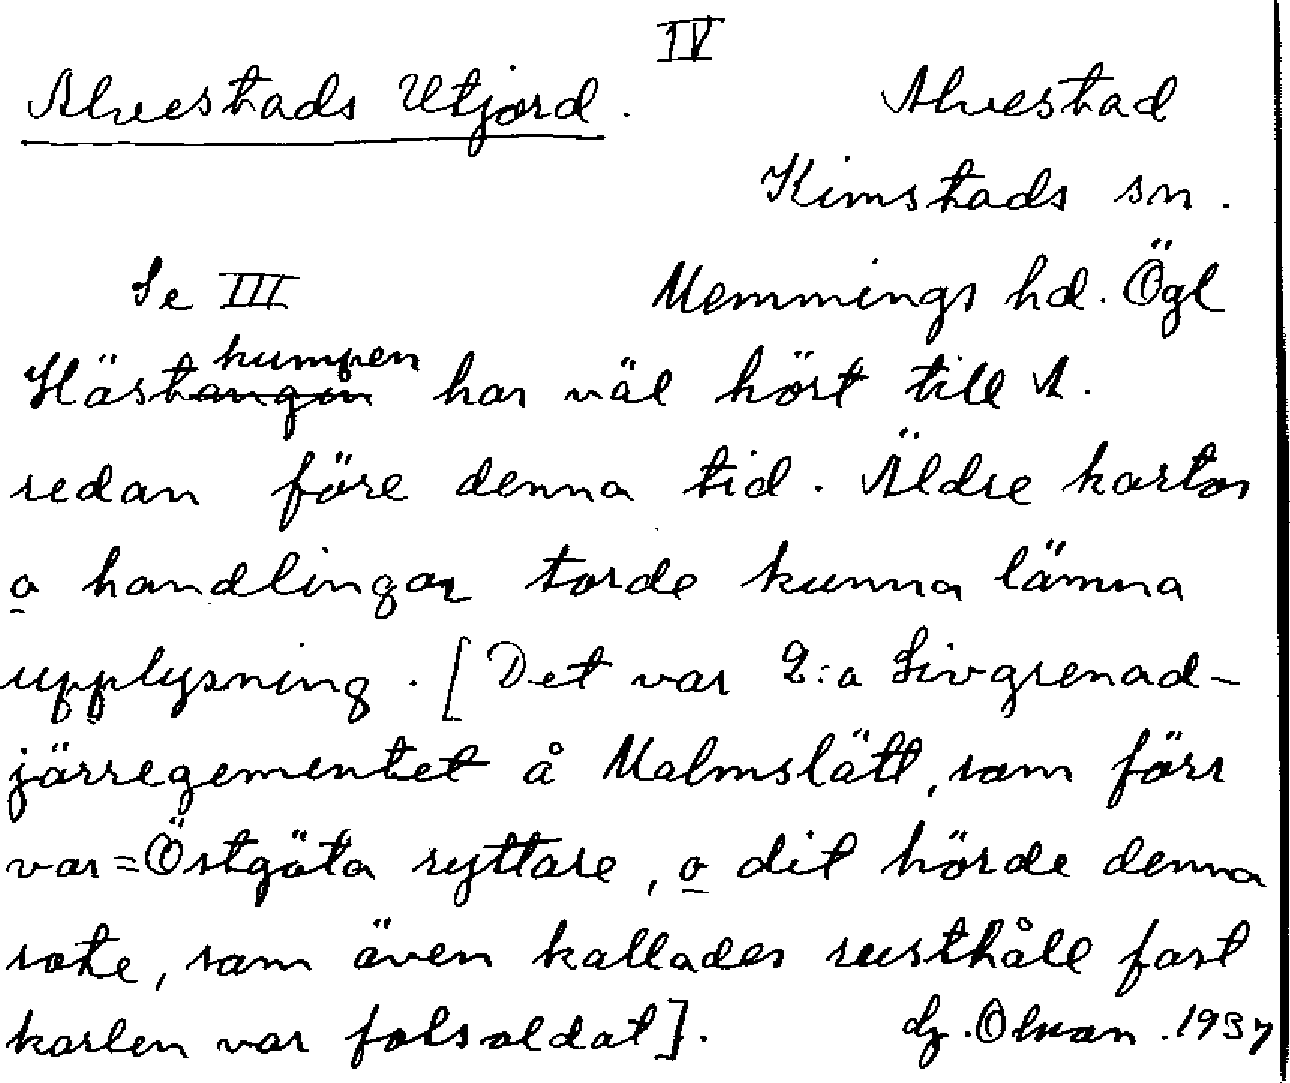 IV
Alvestads Utjord. Alvestad
Kimstads sn.
Se III Memmings hd. Ögl
Hästhumpen har väl hört till A.
redan före denna tid. Äldre kartor
o handlingar torde kunna lämna
upplysning. [Det var 2:a Livgrenad-
järregementet å Malmslätt, som förr
var = Östgöta ryttare, o dit hörde denna
rote, som även kallades rusthåll fast
karlen var fotsoldat].
Olsson. 1937